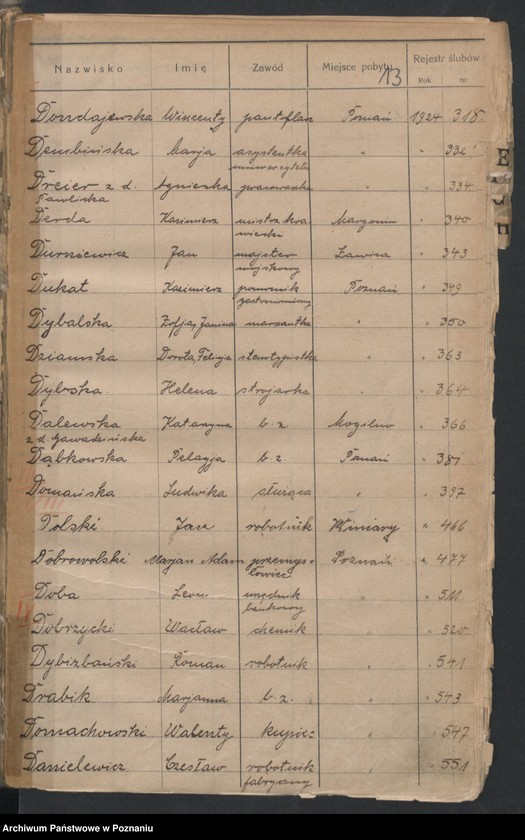 13
Nazwisko Imię Zawód Miejsce pobytu Rejestr ślubów
Rok nr.
Dondajewska Wincenty pantoflarz Poznań 1924 318.
Dembińska Marja asystentka " " 331
uniwersytetu
Dreier z d. Agnieszka prasowaczka " " 334
Pawlicka
Derda Kazimierz mistrz kra- Margonin " 340
wiecki
Durniewicz Jan majster Ławica " 343
wojskowy
Dukat Kazimierz pomocnik Poznań " 349
gastronomiczny
Dybalska Zofja, Janina " " 350
Dziamska Dorota, Felicja stenotypistka " " 363
Dybska Helena strojarka " " 364
Dalewska Katarzyna b. z. Mogilno " 366
z d. Gawadzińska
Dąbkowska Pelagja b. z. Poznań " 381
Domańska Ludwika służąca " " 392
Dolski robotnik Winiary " 466
Dobrowolski Marjan Adam przemys- Poznań " 477
łowiec
Doba Leon urzędnik " " 511
bankowy
Dobrzycki Wacław chemik " " 520
Dybizbański Roman robotnik " " 541
Drabik Marjanna b. z. " " 543
Domachowski Walenty kupiec " " 547
Danielewicz Czesław robotnik " " 551
fabryczny
Archiwum Państwowe w Poznaniu